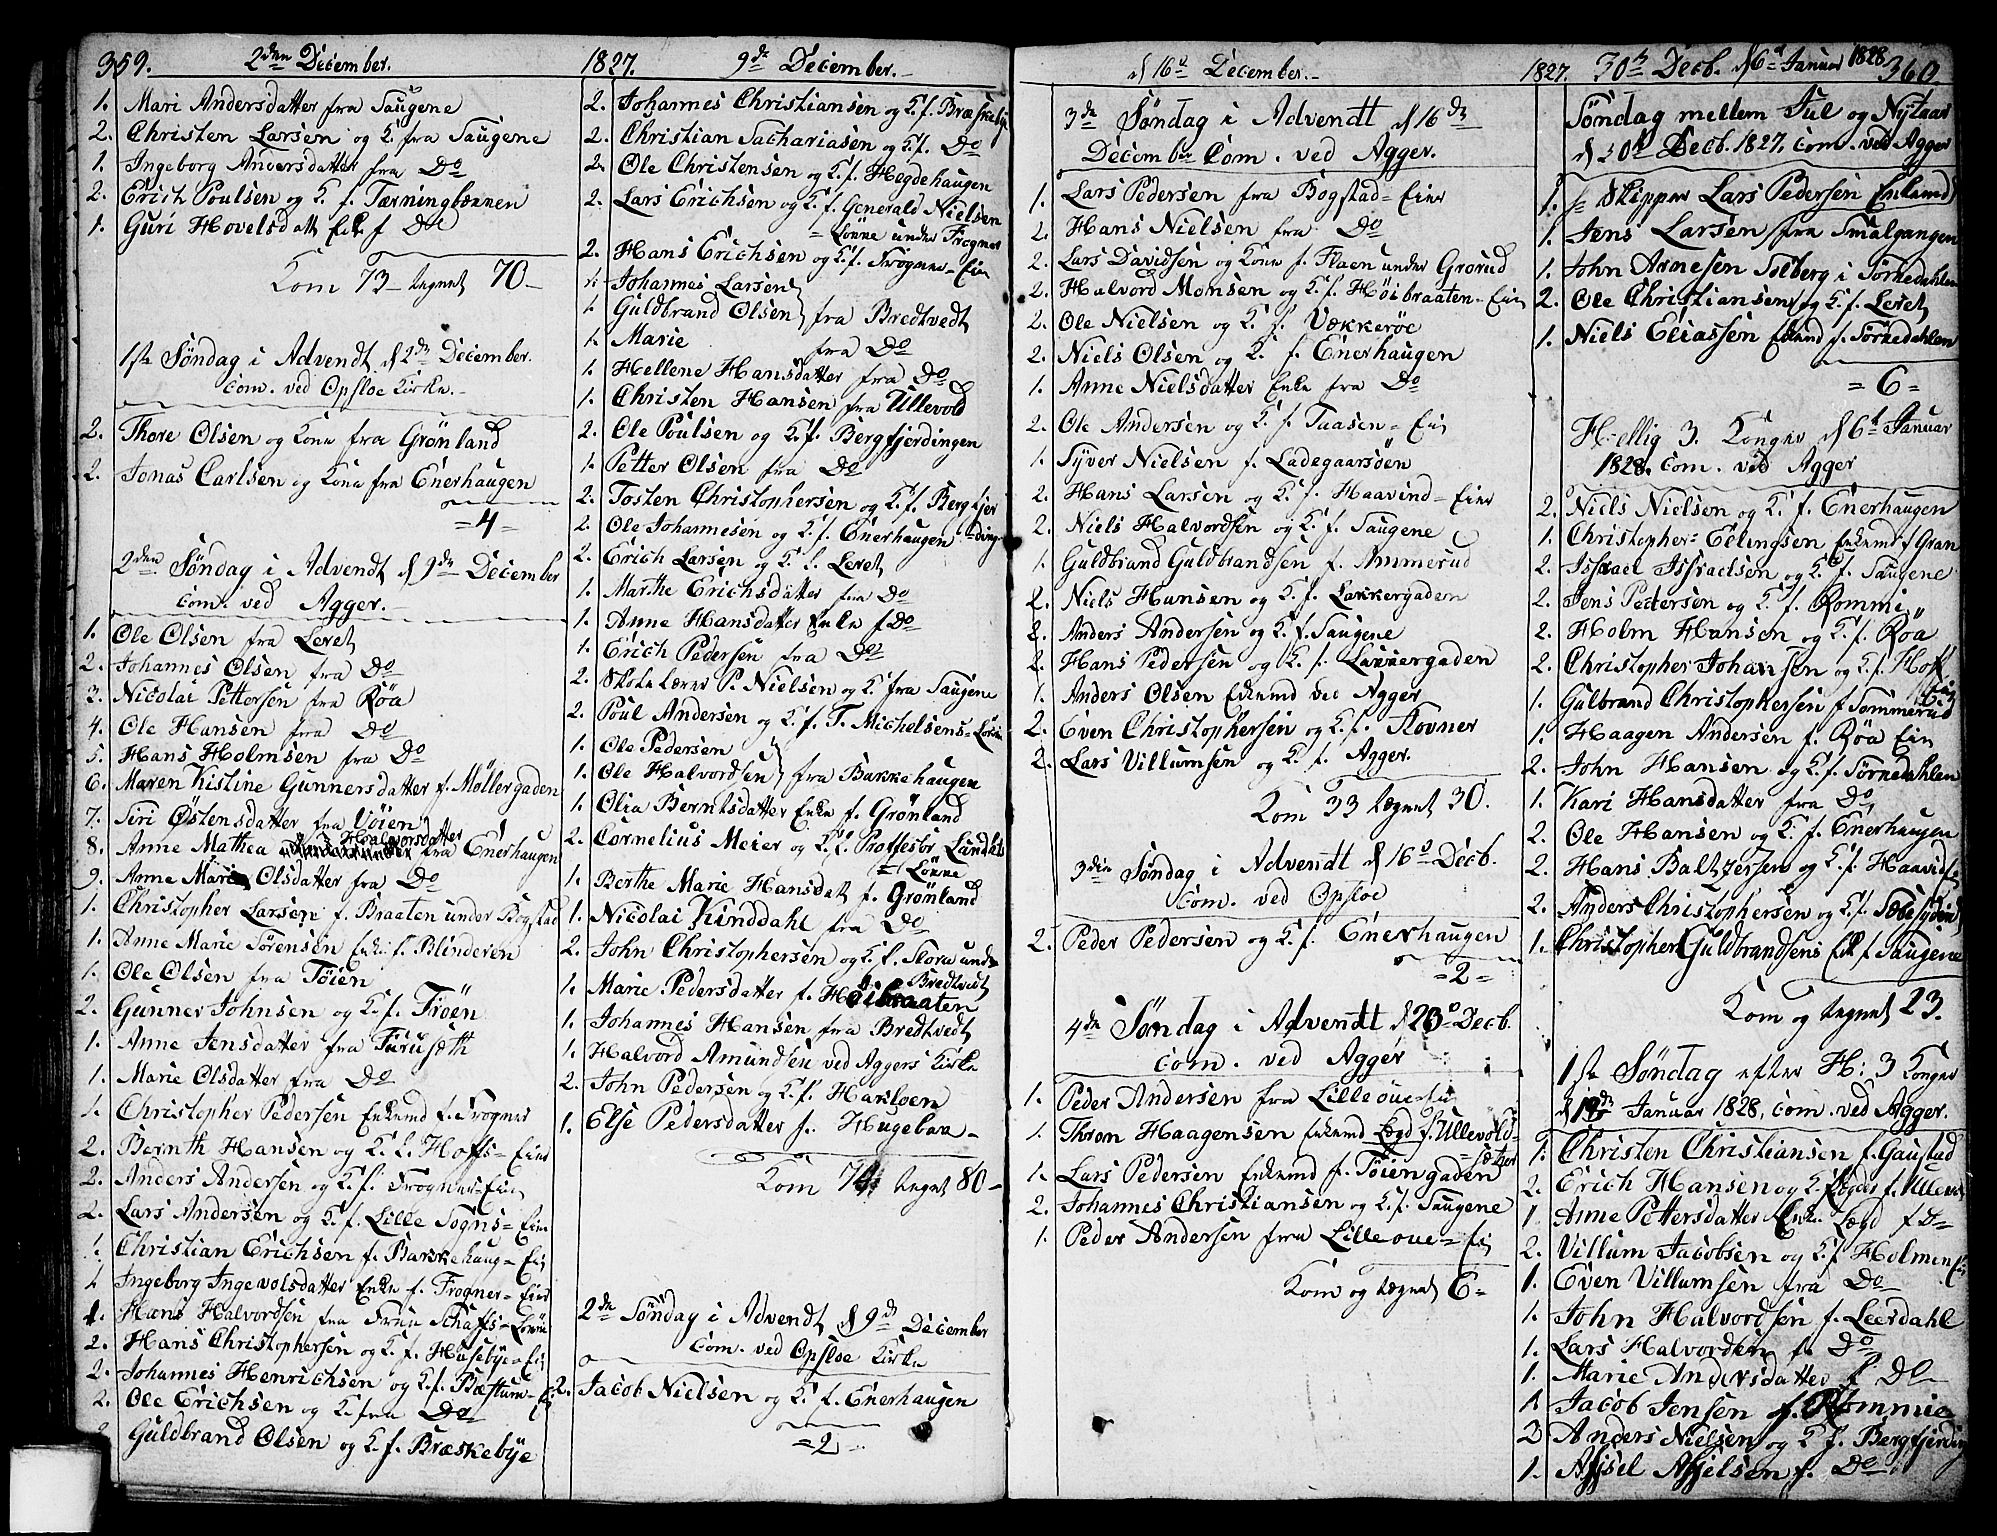 359.
2den December.
1. Mari Andersdatter fra Saugene
2. Christen Larsen og K. fra Saugene
1. Ingeborg Andersdatter fra Do
2. Erich Poulsen og K. f. Tærningbonnen
1. Guri Hovelsdatt Enk f Do
Kom 73 tegnet 70
1ste Søndag i Advendt d 2den December.
Com. ved Opsloe Kirke.
2. Thore Olsen og Kone fra Grønland
2. Jonas Carlsen og Kone fra Enerhaugen
=4=
2den Søndag i Advendt d 9de December
Com. ved Agger.
1. Ole Olsen fra Leret
2. Johannes Olsen fra Do
3. Nicolai Pettersen fra Røa
4. Ole Hansen fra Do
5. Hans Holmsen fra Do
6. Maren Kistine Gunnersdatter f. Møllergaden
7. Siri Østensdatter fra Vøien
8. Anne Mathea Halvorsdatter fra Enerhaugen
9. Anne Marie Olsdatter fra Do
1. Christopher Larsen f. Braaten under Bogstad
1. Anne Marie Sørensen Enke f. Blinderen
1. Ole Olsen fra Tøien
2. Gunner Johnsen og K. f. Frøen
1. Anne Jensdatter fra Furuseth
1. Marie Olsdatter fra Do
1. Christopher Pedersen Enkemd f. Frogner
2. Bernth Hansen og K. f. Hoffs=Eier
2. Anders Andersen og K. f. Frogner=Eie
2. Lars Andersen og K. f. Lille Sogns=Eie
1. Christian Erichsen f. Bakkehaug=Eie
1. Ingeborg Ingevolsdatter Enke f. Frogner=Eier
1. Hans Halvordsen fra Frue Schafts=Lønne
2. Hans Christophersen og K. f. Husebye=Eie
2. Johannes Henrichsen og K. f. Bæstum=E
2. Ole Erichsen og K. fra Do
2. Guldbrand Olsen og K. f. Bræskebye
1827.
9de December.
2. Johannes Christiansen og K. f. Bræskebye
2. Christian Sachariasen og K. f. Do
2. Ole Christensen og K. f. Hegdehaugen
2. Lars Erichsen og K. f. General Nielsen
=Lønne under Frogner
2. Hans Erichsen og K. f. Frogner=Eie
1. Johannes Larsen
1. Guldbrand Olsen fra Bredtvedt
1. Marie fra Do
1. Hellene Hansdatter fra Do
1. Christen Hansen fra Ullevold
2. Ole Poulsen og K. f. Bergfjerdingen
1. Petter Olsen fra Do
2. Tosten Christophersen og K. f. Bergfjer
2. Ole Johannesen og K. f. Enerhaugen =ding
2. Erich Larsen og K. f. Leret
1. Marthe Erichsdatter fra Do
1. Anne Hansdatter Enke f Do
1. Erich Pedersen fra Do
2. Skolelærer P. Nielsen og K. fra Saugene
2. Poul Andersen og K. f. T. Michelsens=Løkke
1. Ole Pedersen
1. Ole Halvordsen fra Bakkehaugen
1. Olia Berntsdatter Enke f. Grønland
2. Cornelius Meier og K. f. Proffesør Lundhs
=Lønne
1. Berthe Marie Hansdatt f. Grønland
1. Nicolai Kinddahl fra Do
2. John Christophersen og K. f. Flora under
Bredtvedt
1. Marie Pedersdatter f. Høibraaten
1. Johannes Hansen fra Bredtvedt
1. Halvord Amundsen ved Aggers Kirke
2. John Pedersen og K. f. Hasloen
1. Else Pedersdatter f. Hugebaa
Kom 79 tegnet 80
2de Søndag i Advendt d 9de December
Com. ved Opsloe Kirke
2. Jacob Nielsen og K. f. Enerhaugen
=2=
d 16de December.
3de Søndag i Advendt d 16de
December Com. ved Agger.
1. Lars Pedersen fra Bogstad=Eier
2. Hans Nielsen fra Do
2. Lars Davidsen og Kone f. Flaen under Grorud
2. Halvord Monsen og K. f. Høibraaten=Eie
2. Ole Nielsen og K. f. Vækkerøe
2. Niels Olsen og K. f. Enerhaugen
1. Anne Nielsdatter Enke fra Do
2. Ole Andersen og K. f. Tuasen=Eie
1. Syver Nielsen f. Ladegaarsøen
2. Hans Larsen og K. f. Haavind=Eier
2. Niels Halvordsen og K. f. Saugene
1. Guldbrand Guldbrandsen f. Ammerud
2. Niels Hansen og K. f. Lakkergaden
2. Anders Andersen og K. f. Saugene
2. Hans Pedersen og K. f. Lakkergaden
1. Anders Olsen Enkemd ved Agger
2. Even Christophersen og K. f. Rovner
2. Lars Villumsen og K. f. Agger.
Kom 33 tegnet 30.
3die Søndag i Advendt d 16de Decb.
Com. ved Opsloe
2. Peder Pedersen og K. f. Enerhaugen
=2=
4de Søndag i Advendt d 23de Decb.
Com. ved Agger
1. Peder Andersen fra Lilleoue=Ei
1. Thron Haagensen Enkemd Logd f. Ullevold=
=sæter
1. Lars Pedersen Enkemd f. Tøiengaden
2. Johannes Christiansen og K. f. Saugene
1. Peder Andersen fra Lilleoue=Ei
Kom og tegnet 6
1827.
30te Decb. d 6te Januar 1828
360
Søndag mellem Jul og Nytaar
d 30te Decb. 1827. Com. ved Agger
1. Skipper Lars Pedersen Enkemd
1. Jens Larsen fra Smalgangen
1. John Arnesen Solberg i Sørkedahlen
2. Ole Christiansen og K. f. Leret
1. Niels Eliassen Enkemd f. Sørkedahlen
=6=
Hellig 3. Konger d 6te Januar
1828. Com. ved Agger
2. Niels Nielsen og K. f. Enerhaugen
1. Christopher Ellingsen Enkemd f Gran
2. Issrael Issraelsen og K. f. Saugene
2. Jens Pedersen og K. f. Rommi
2. Holm Hansen og K. f. Røa
2. Christopher Johansen og K. f. Hoff
1. Gulbrand Christophersen f Sommerud
1. Haagen Andersen f. Røa Eie
2. John Hansen og K. f. Sørkedahlen
1. Kari Hansdatter fra Do
2. Ole Hansen og K. f Enerhaugen
2. Hans Baltzersen og K. f. Haavid
2. Anders Christophersen og K. f.
1. Christopher Guldbrandsens Ek f Saugene
Kom og tegnet 23.
1ste Søndag efter H: 3 Konger
d 13de Januar 1828. Com. ved Agger.
1. Christen Christiansen f. Gaustad
2. Erich Hansen og K. Logd f. Ullevold
1. Anne Pettersdatter Enke Logd f D
2. Villum Jacobsen og K. f Holmen
1. Even Villumsen fra Do
1. John Halvordsen f. Leerdahl
1. Lars Halvordsen f. Do
1. Marie Andersdatter f. Do
1. Jacob Jensen f. Rommie
2. Anders Nielsen og K f. Bergfjerding
1. Assel Asselsen f. Do